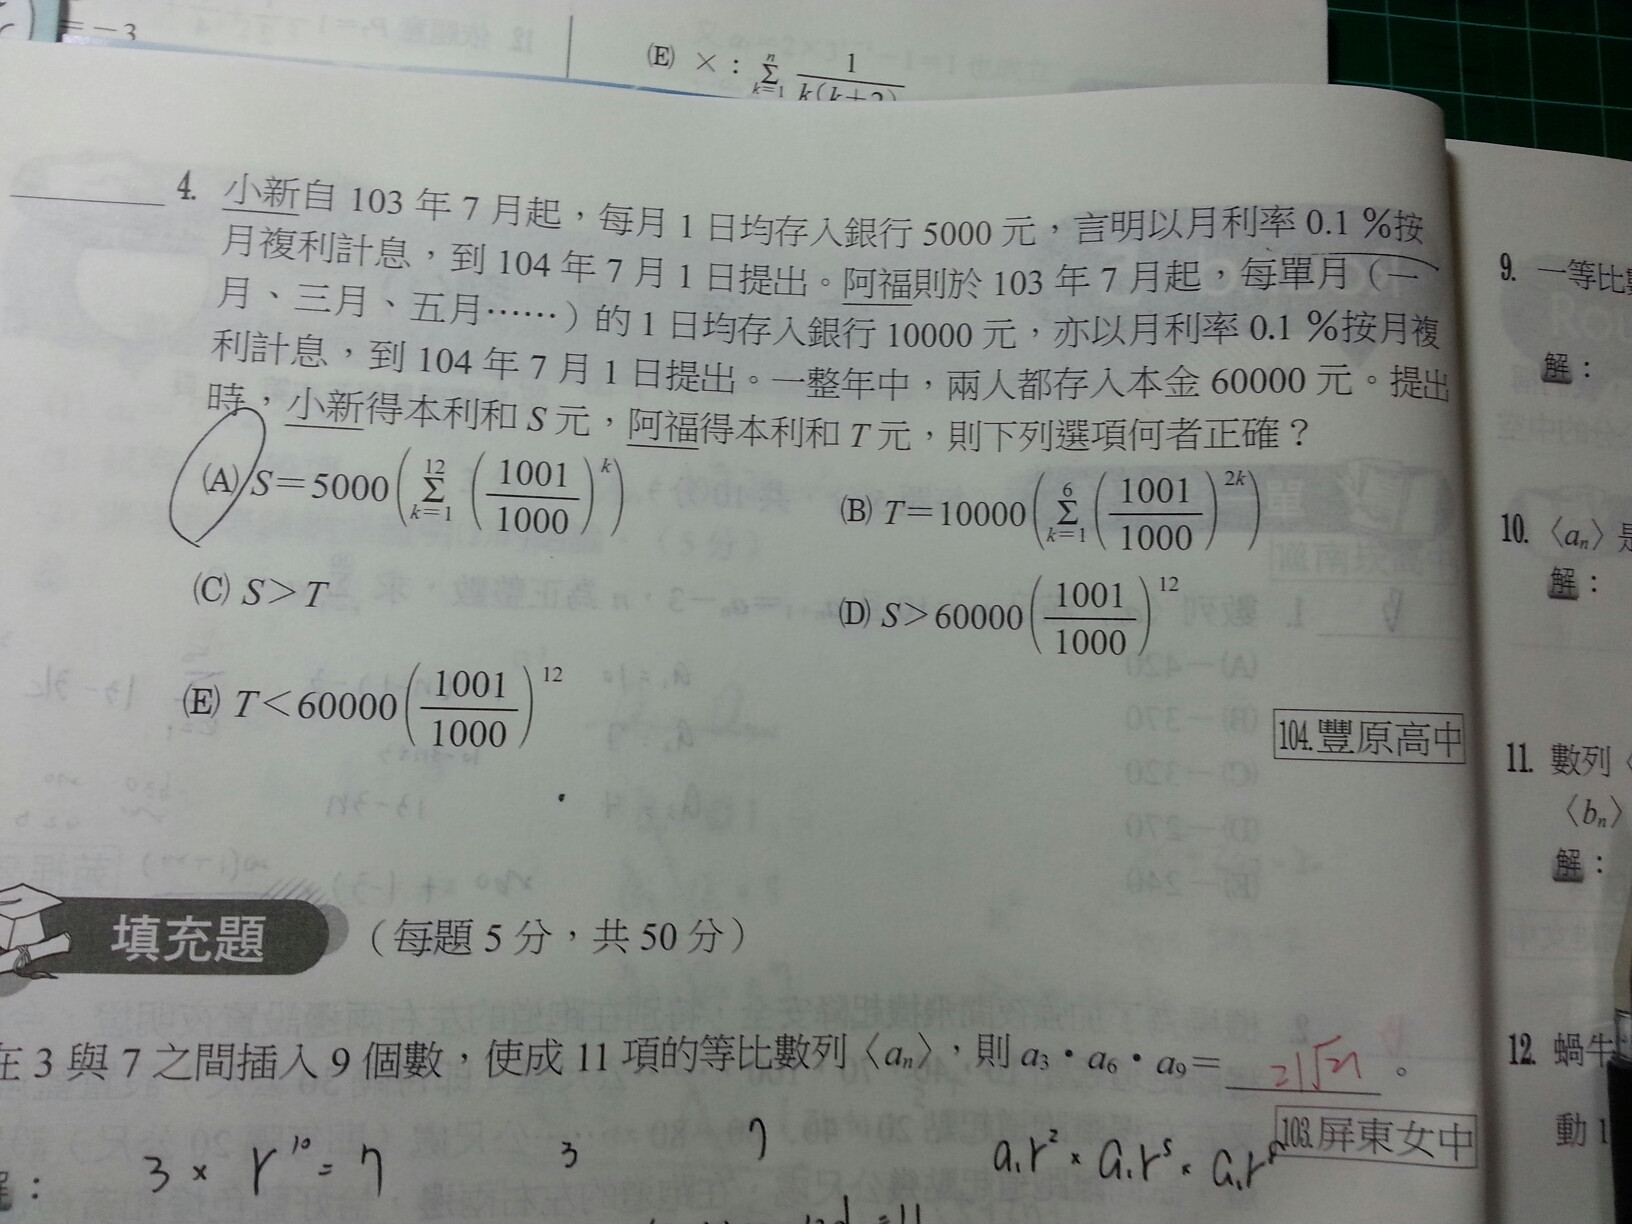 =-3
(E) ×：\sum_{k=1}^{n} \frac{1}{k(k+2)}
4. 小新自 103 年 7 月起，每月 1 日均存入銀行 5000 元，言明以月利率 0.1 %按
月複利計息，到 104 年 7 月 1 日提出。阿福則於 103 年 7 月起，每單月（一
月、三月、五月……）的 1 日均存入銀行 10000 元，亦以月利率 0.1 %按月複
利計息，到 104 年 7 月 1 日提出。一整年中，兩人都存入本金 60000 元。提出
時，小新得本利和 S 元，阿福得本利和 T 元，則下列選項何者正確？
(A) S=5000(\sum_{k=1}^{12} (\frac{1001}{1000})^{k}) (B) T=10000(\sum_{k=1}^{6} (\frac{1001}{1000})^{2k})
(C) S>T (D) S>60000(\frac{1001}{1000})^{12}
(E) T<60000(\frac{1001}{1000})^{12}
104.豐原高中
填充題 （每題 5 分，共 50 分）
在 3 與 7 之間插入 9 個數，使成 11 項的等比數列〈a_n〉，則 a_3·a_6·a_9= 21√21 。
103.屏東女中
3 × r^{10} = 7 3 7 a_1r^2 × a_1r^5 × a_1r^8
=11
9. 一等比
解：
10. 〈a_n〉是
解：
11. 數列〈
〈b_n〉
解：
12. 蝸牛
動 1